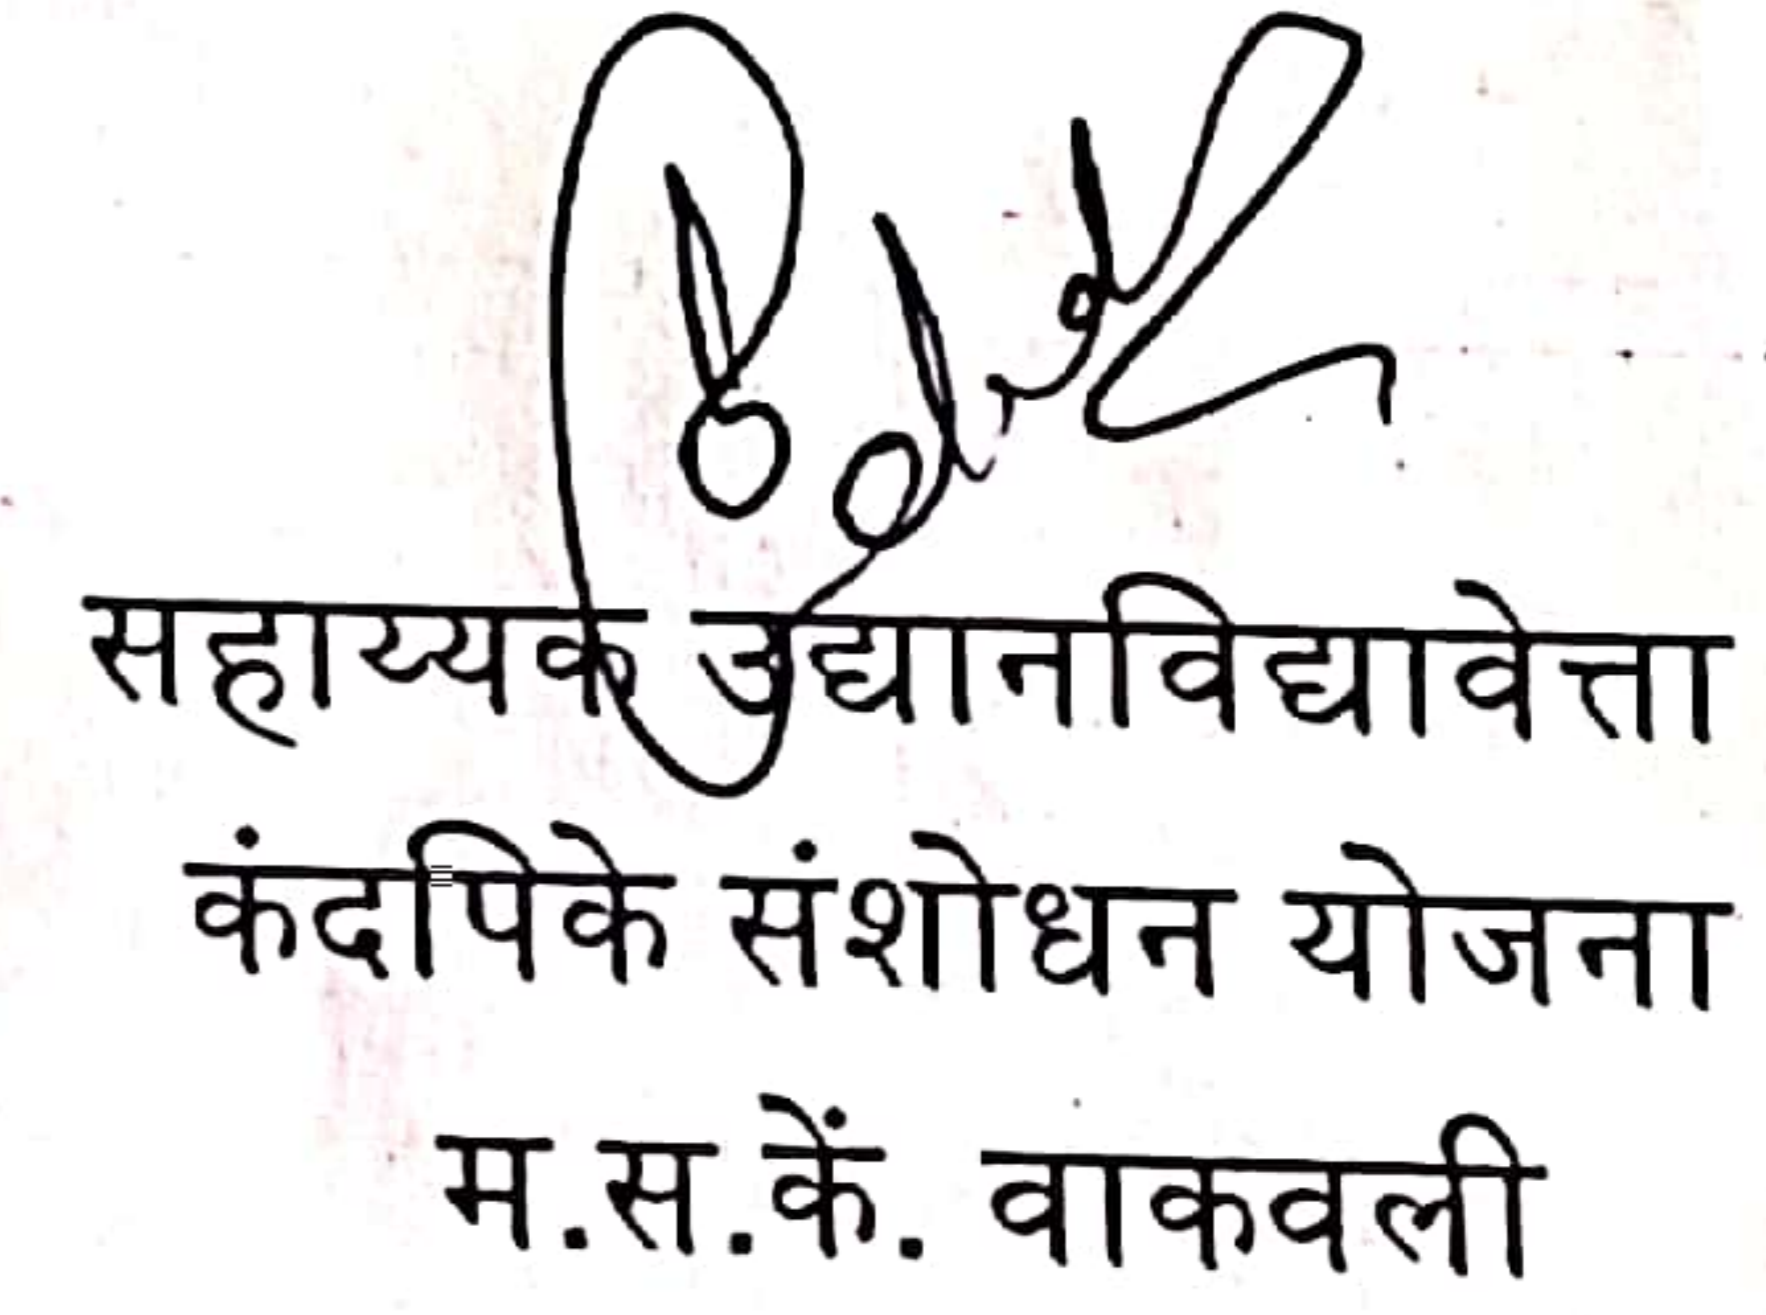 सहाय्यक उद्यानविद्यावेत्ता
कंदपिके संशोधन योजना
म.स.कें. वाकवली